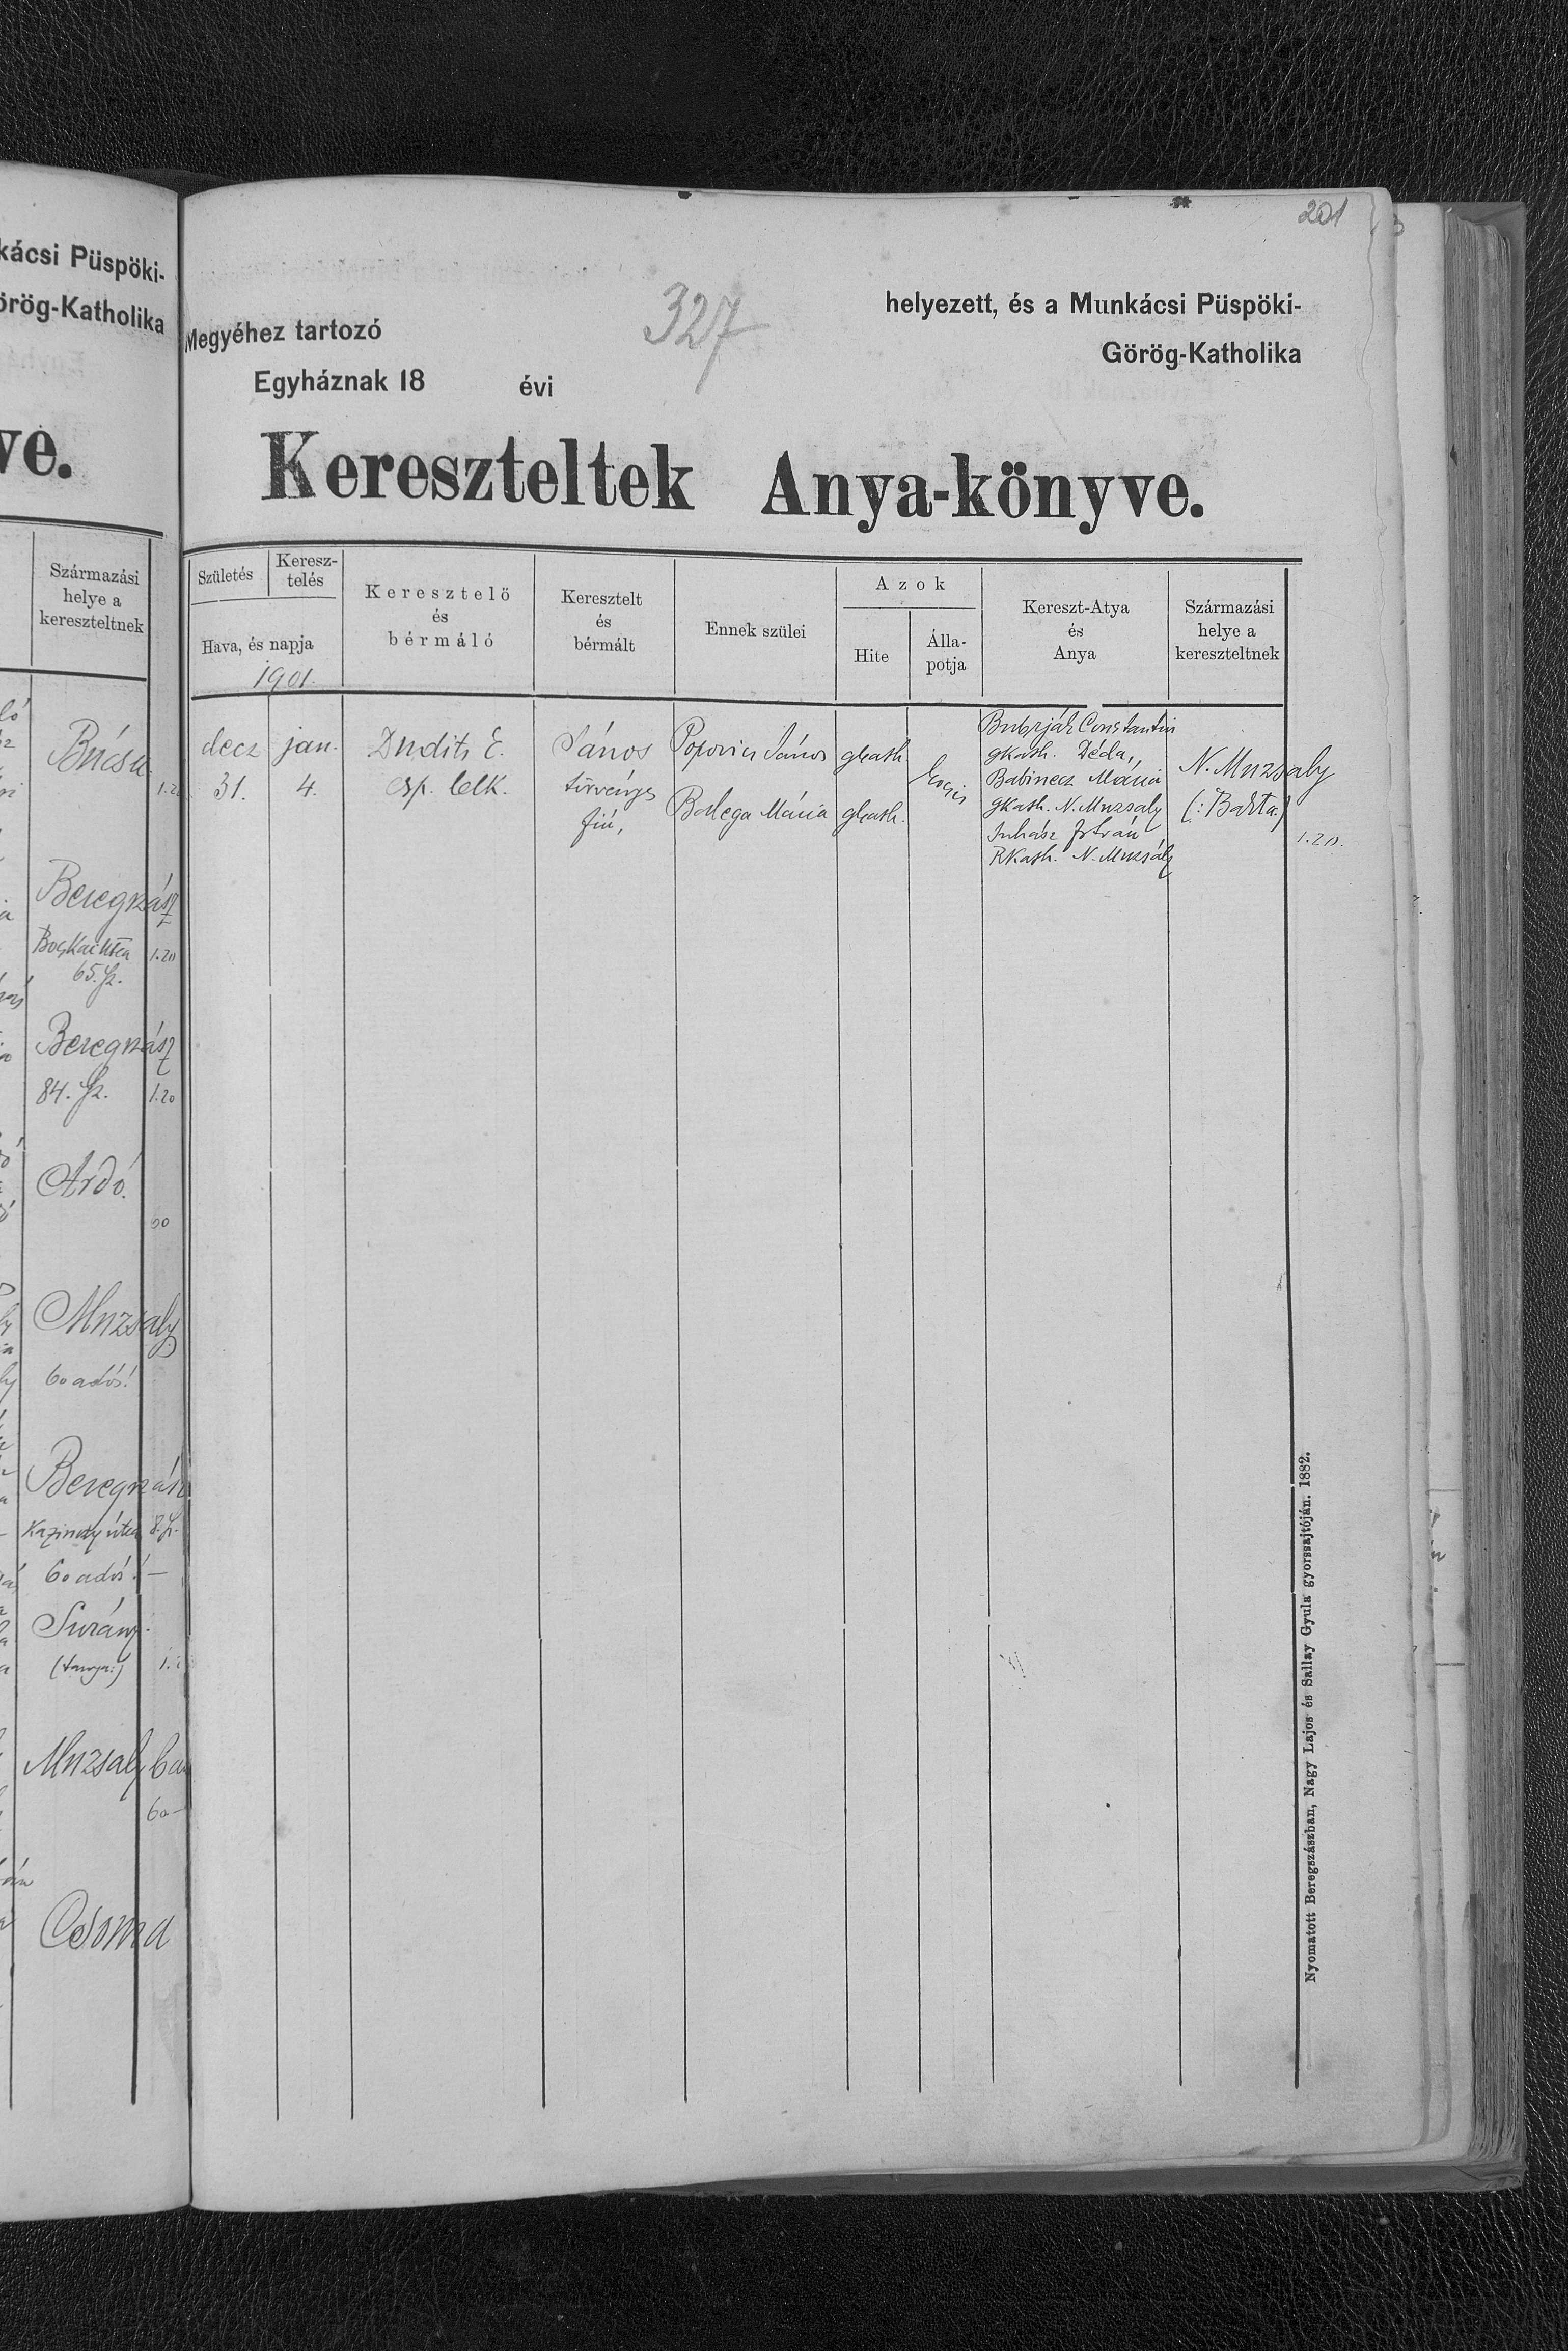 kácsi Püspöki-
örög-Katholika
ve.
Származási
helye a
kereszteltnek
Búcsu.
Beregszász
1.20
65. sz.
Beregszász
84. sz.
1.20
Ardó.
60
Muzsaly
60 adós!
Beregszász
Kazinczy útca 8. sz.
60 adós! —
Surány.
(tanya:)
Muzsaly
60 —
Csoma
201
327
Megyéhez tartozó
helyezett, és a Munkácsi Püspöki-
Görög-Katholika
Egyháznak 18 évi
Kereszteltek Anya-könyve.
Születés
Keresz-
telés
Hava, és napja
1901.
Keresztelö
és
bérmáló
Keresztelt
és
bérmált
Ennek szülei
Azok
Hite
Álla-
potja
Kereszt-Atya
és
Anya
Származási
helye a
kereszteltnek
decz
31.
jan.
4.
Dudits E.
esp. lelk.
János
törvényes
fiú,
Popovics János
Balega Mária
gkath.
gkath.
Constantin
gkath. Déda,
Babinecz Mária
gkath. N. Muzsaly
Juhász István
Rkath. N. Muzsaly
N. Muzsaly
(: Barta:)
1.20.
Nyomatott Beregszászban, Nagy Lajos és Sallay Gyula gyorssajtóján. 1882.